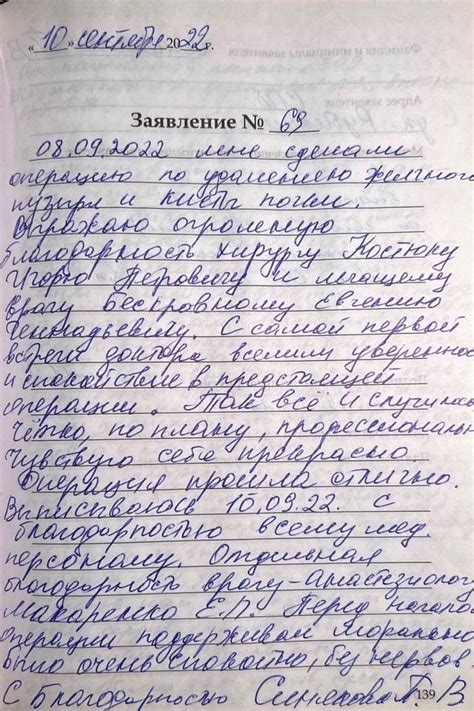 « 10 » сентября 2022 г.
Заявление № 69
08.09.2022 мне сделали
операцию по удалению желчного
пузыря и кисты почки.
Выражаю огромную
благодарность хирургу Костюку
Игорю Петровичу и лечащему
врачу Бескровному Евгению
Геннадьевичу. С самой первой
встречи доктора вселили увереннос
и спокойствие в предстоящей
операции. Так всё и случилось
Чётко, по плану, профессиональн
Чувствую себя прекрасно.
Операция прошла отлично.
Выписываюсь 10.09.22. с
благодарностью всему мед.
персоналу. Отдельная
благодарность врачу-анастезиолог
Макаренко Е.П. Перед начало
операции поддерживал морально
было очень спокойно, без нервов
С благодарностью В
139